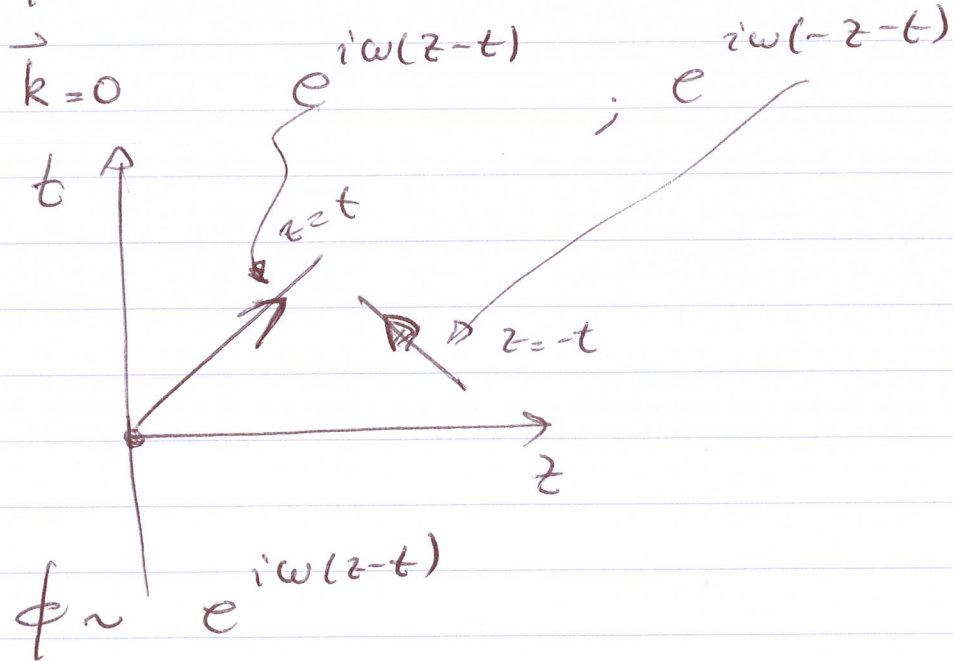 k⃗ = 0 e^{iω(z-t)} ; e^{iω(-z-t)}
t
z = t
z = -t
z
ϕ ~ e^{iω(z-t)}